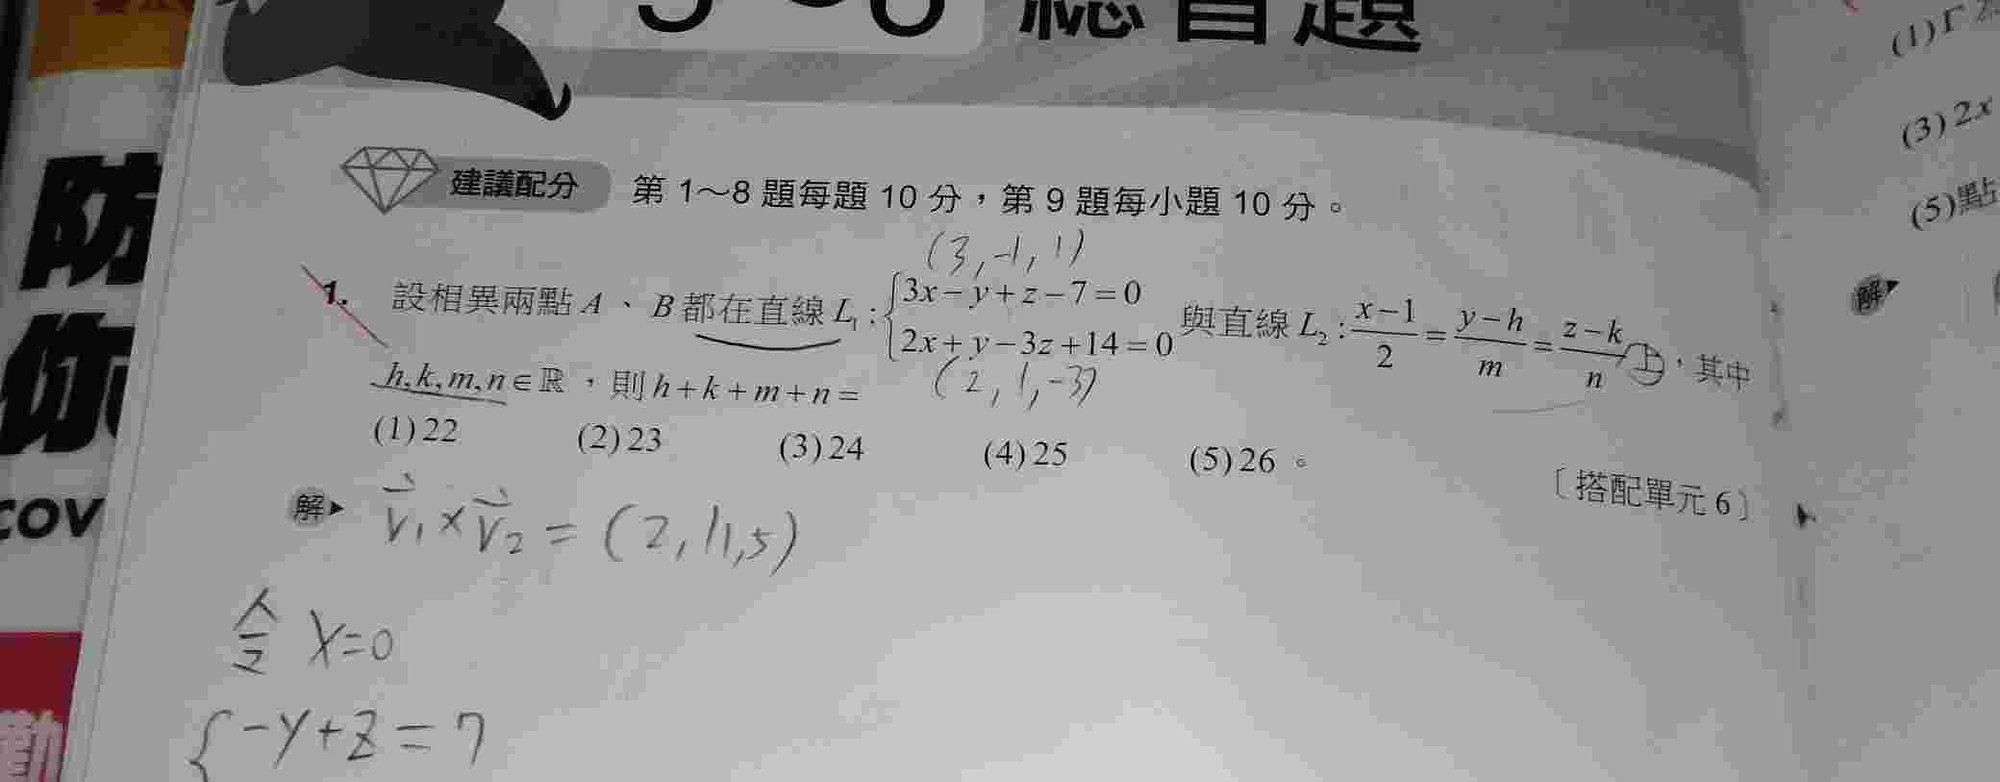 總習題
防
你
COV
建議配分 第 1～8 題每題 10 分，第 9 題每小題 10 分。
(3,-1,1)
1. 設相異兩點 A、B 都在直線 L₁:{3x-y+z-7=0 2x+y-3z+14=0 與直線 L₂:(x-1)/2=(y-h)/m=(z-k)/n 上，其中
(2,1,-3)
h,k,m,n∈ℝ，則 h+k+m+n=
(1)22 (2)23 (3)24 (4)25 (5)26。
〔搭配單元 6〕
解▶ V₁×V₂=(2,11,5)
令 X=0
{-y+z=7
(3)2x
(5)點
解▶